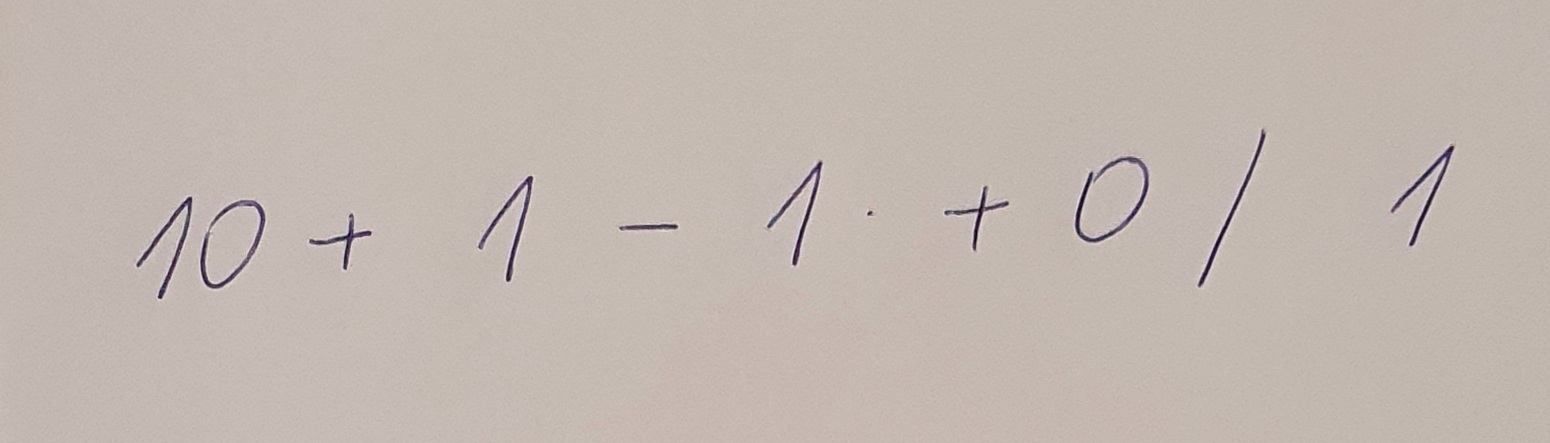 10 + 1 - 1 · + 0 / 1